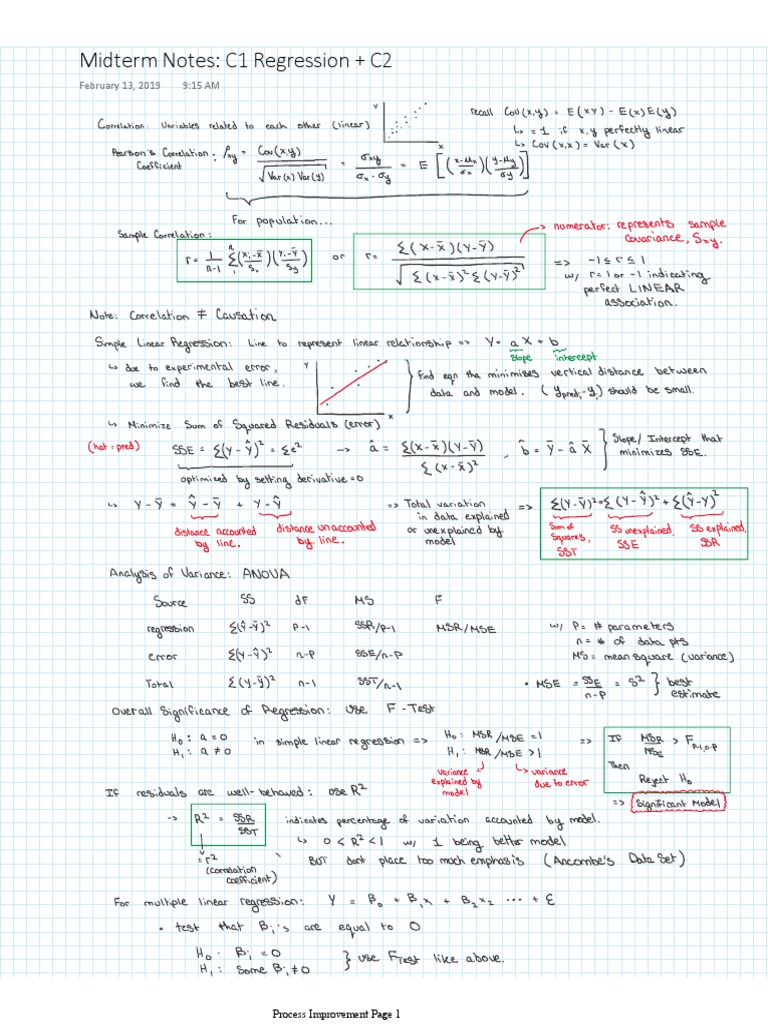 Midterm Notes: C1 Regression + C2
February 13, 2019 9:15 AM
Correlation: Variables related to each other (linear)
Y
X
recall Cov(x,y) = E(XY) - E(x)E(y)
↳ = 1 if x,y perfectly linear
↳ Cov(x,x) = Var(x)
Pearson's Correlation Coefficient: ρxy = Cov(x,y) / √(Var(x) Var(y)) = σxy / (σx·σy) = E[((x-μx)/σx)((y-μy)/σy)]
For population...
Sample Correlation:
r = 1/(n-1) Σ((xi-x̄)/Sx)((yi-ȳ)/Sy) or r = Σ(X-X̄)(Y-Ȳ) / √(Σ(X-X̄)² Σ(Y-Ȳ)²)
→ numerator: represents sample
covariance, Sxy.
=> -1 ≤ r ≤ 1
w/ r=1 or -1 indicating
perfect LINEAR
association.
Note: Correlation ≠ Causation
Simple Linear Regression: Line to represent linear relationship => Y = aX + b
slope intercept
↳ due to experimental error,
we find the best line.
Y
X
find eqn tha minimises vertical distance between
data and model. (ypred - yi) should be small.
↳ Minimize Sum of Squared Residuals (error)
(hat = pred) SSE = Σ(Y-Ŷ)² = Σe² → â = Σ(X-X̄)(Y-Ȳ) / Σ(X-X̄)² , b̂ = Ȳ - âX̄ } Slope/Intercept that
minimizes SSE.
optimized by setting derivative = 0
↳ Y-Ȳ = Ŷ-Ȳ + Y-Ŷ
distance accounted
by line.
distance unaccounted
by line.
=> Total variation
in data explained
or unexplained by
model
=> Σ(Y-Ȳ)² = Σ(Y-Ŷ)² + Σ(Ŷ-Ȳ)²
Sum of
Squares,
SST
SS unexplained,
SSE
SS explained,
SSR
Analysis of Variance: ANOVA
Source SS dF MS F
regression Σ(Ŷ-Ȳ)² P-1 SSR/P-1 MSR/MSE
error Σ(Y-Ŷ)² n-P SSE/n-P
Total Σ(Y-Ȳ)² n-1 SST/n-1
w/ P = # parameters
n = # of data pts
MS = mean square (variance)
• MSE = SSE/(n-P) = S² } best
estimate
Overall Significance of Regression: Use F-Test
H₀: a = 0
H₁: a ≠ 0
in simple linear regression =>
H₀: MSR/MSE = 1
H₁: MSR/MSE > 1
variance
explained by
model
↳ variance
due to error
=> If MSR/MSE > F P-1,n-P
Then
Reject H₀
=> Significant Model
If residuals are well-behaved: use R²
→ R² = SSR/SST indicates percentage of variation accounted by model.
↳ 0 < R² < 1 w/ 1 being better model
= r²
(correlation
coefficient)
BUT dont place too much emphasis (Ancombe's Data Set)
For multiple linear regression: Y = B₀ + B₁x₁ + B₂x₂ ... + ε
• test that Bi's are equal to 0
H₀: Bi = 0
H₁: Some Bi ≠ 0
} use FTest like above.
Process Improvement Page 1